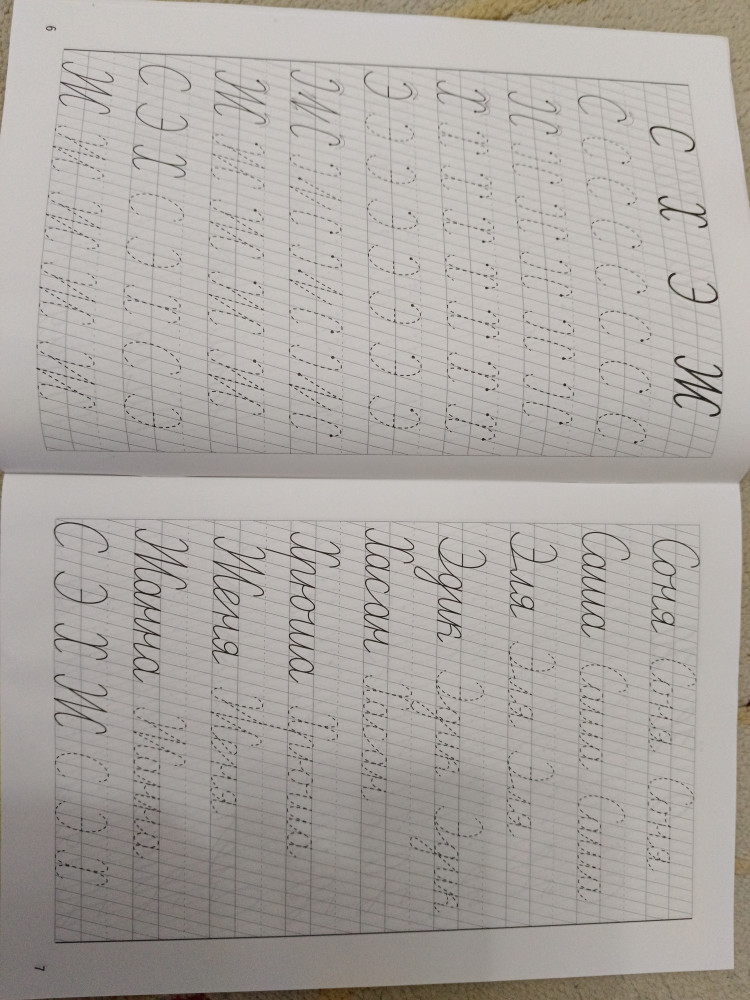 С Х Э Ж
С С С С С С С
Х Х Х Х Х Х
Х Х Х Х Х Х Х Х
Э Э Э Э Э Э Э Э
Ж Ж Ж Ж Ж
С Э Х С Э Х С Э
Ж Ж Ж Ж Ж
6
Соня Соня Соня
Саша Саша Саша
Эля Эля Эля
Эдик Эдик Эдик
Хасан Хасан
Хрюша Хрюша
Женя Женя
Жанна Жанна
С Э Х Ж С Э Х
7